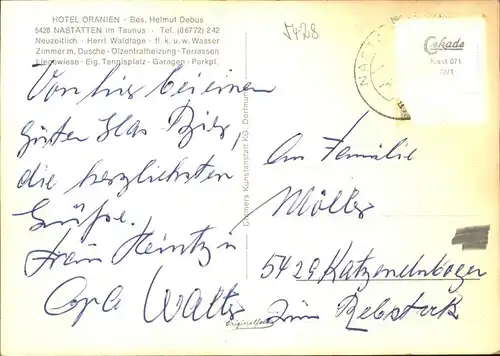 HOTEL ORANIEN · Bes. Helmut Debus
5428 NASTÄTTEN im Taunus · Tel. (06772) 242
Neuzeitlich · Herrl. Waldlage · fl. k. u. w. Wasser
Zimmer m. Dusche · Ölzentralheizung · Terrassen
Liegewiese · Eig. Tennisplatz · Garagen · Parkpl.
5428
Cekade
Nast 071
70/1
Von hier bei einem
guten Glas Bier,
die herzlichsten
Grüße.
Frau Heintz u
Opa Walter
Cramers Kunstanstalt KG, Dortmund
Originalfoto
An Familie
Möller
5429 Katzenelnbogen
Zum Rebstock